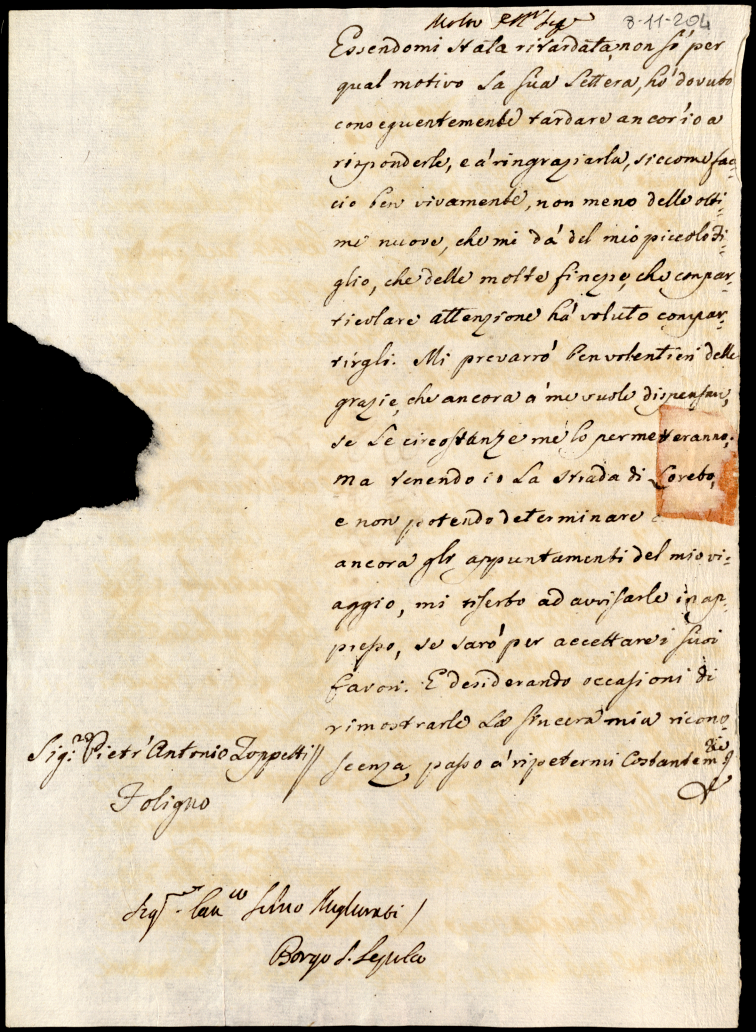 8-11-204
Molto
Essendomi stata ritardata non sò per
qual motivo la sua Lettera, hò dovuto
conseguentemente tardare ancor'io a
risponderle, e à ringraziarla, siccome fac-
cio ben vivamente, non meno delle otti-
me nuove, che mi dà del mio piccolo Fi-
glio, che delle molte finezze, che con par-
ticolare attenzione hà voluto compar-
tirgli. Mi prevarrò ben volentieri delle
grazie, che ancora à me vuole dispensare,
se le circostanze me lo permetteranno;
ma tenendo io la strada di Loreto,
e non potendo determinare
ancora gli appuntamenti del mio vi-
aggio, mi riserbo ad avvisarle in ap-
presso, se sarò per accettare i suoi
favori. E desiderando occasioni di
rimostrarle la sincera mia ricono-
scenza, passo à ripetermi Costantem.e
Sig.r Pietr'Antonio Zoppetti
Foligno
Borgo S. Sepolcro